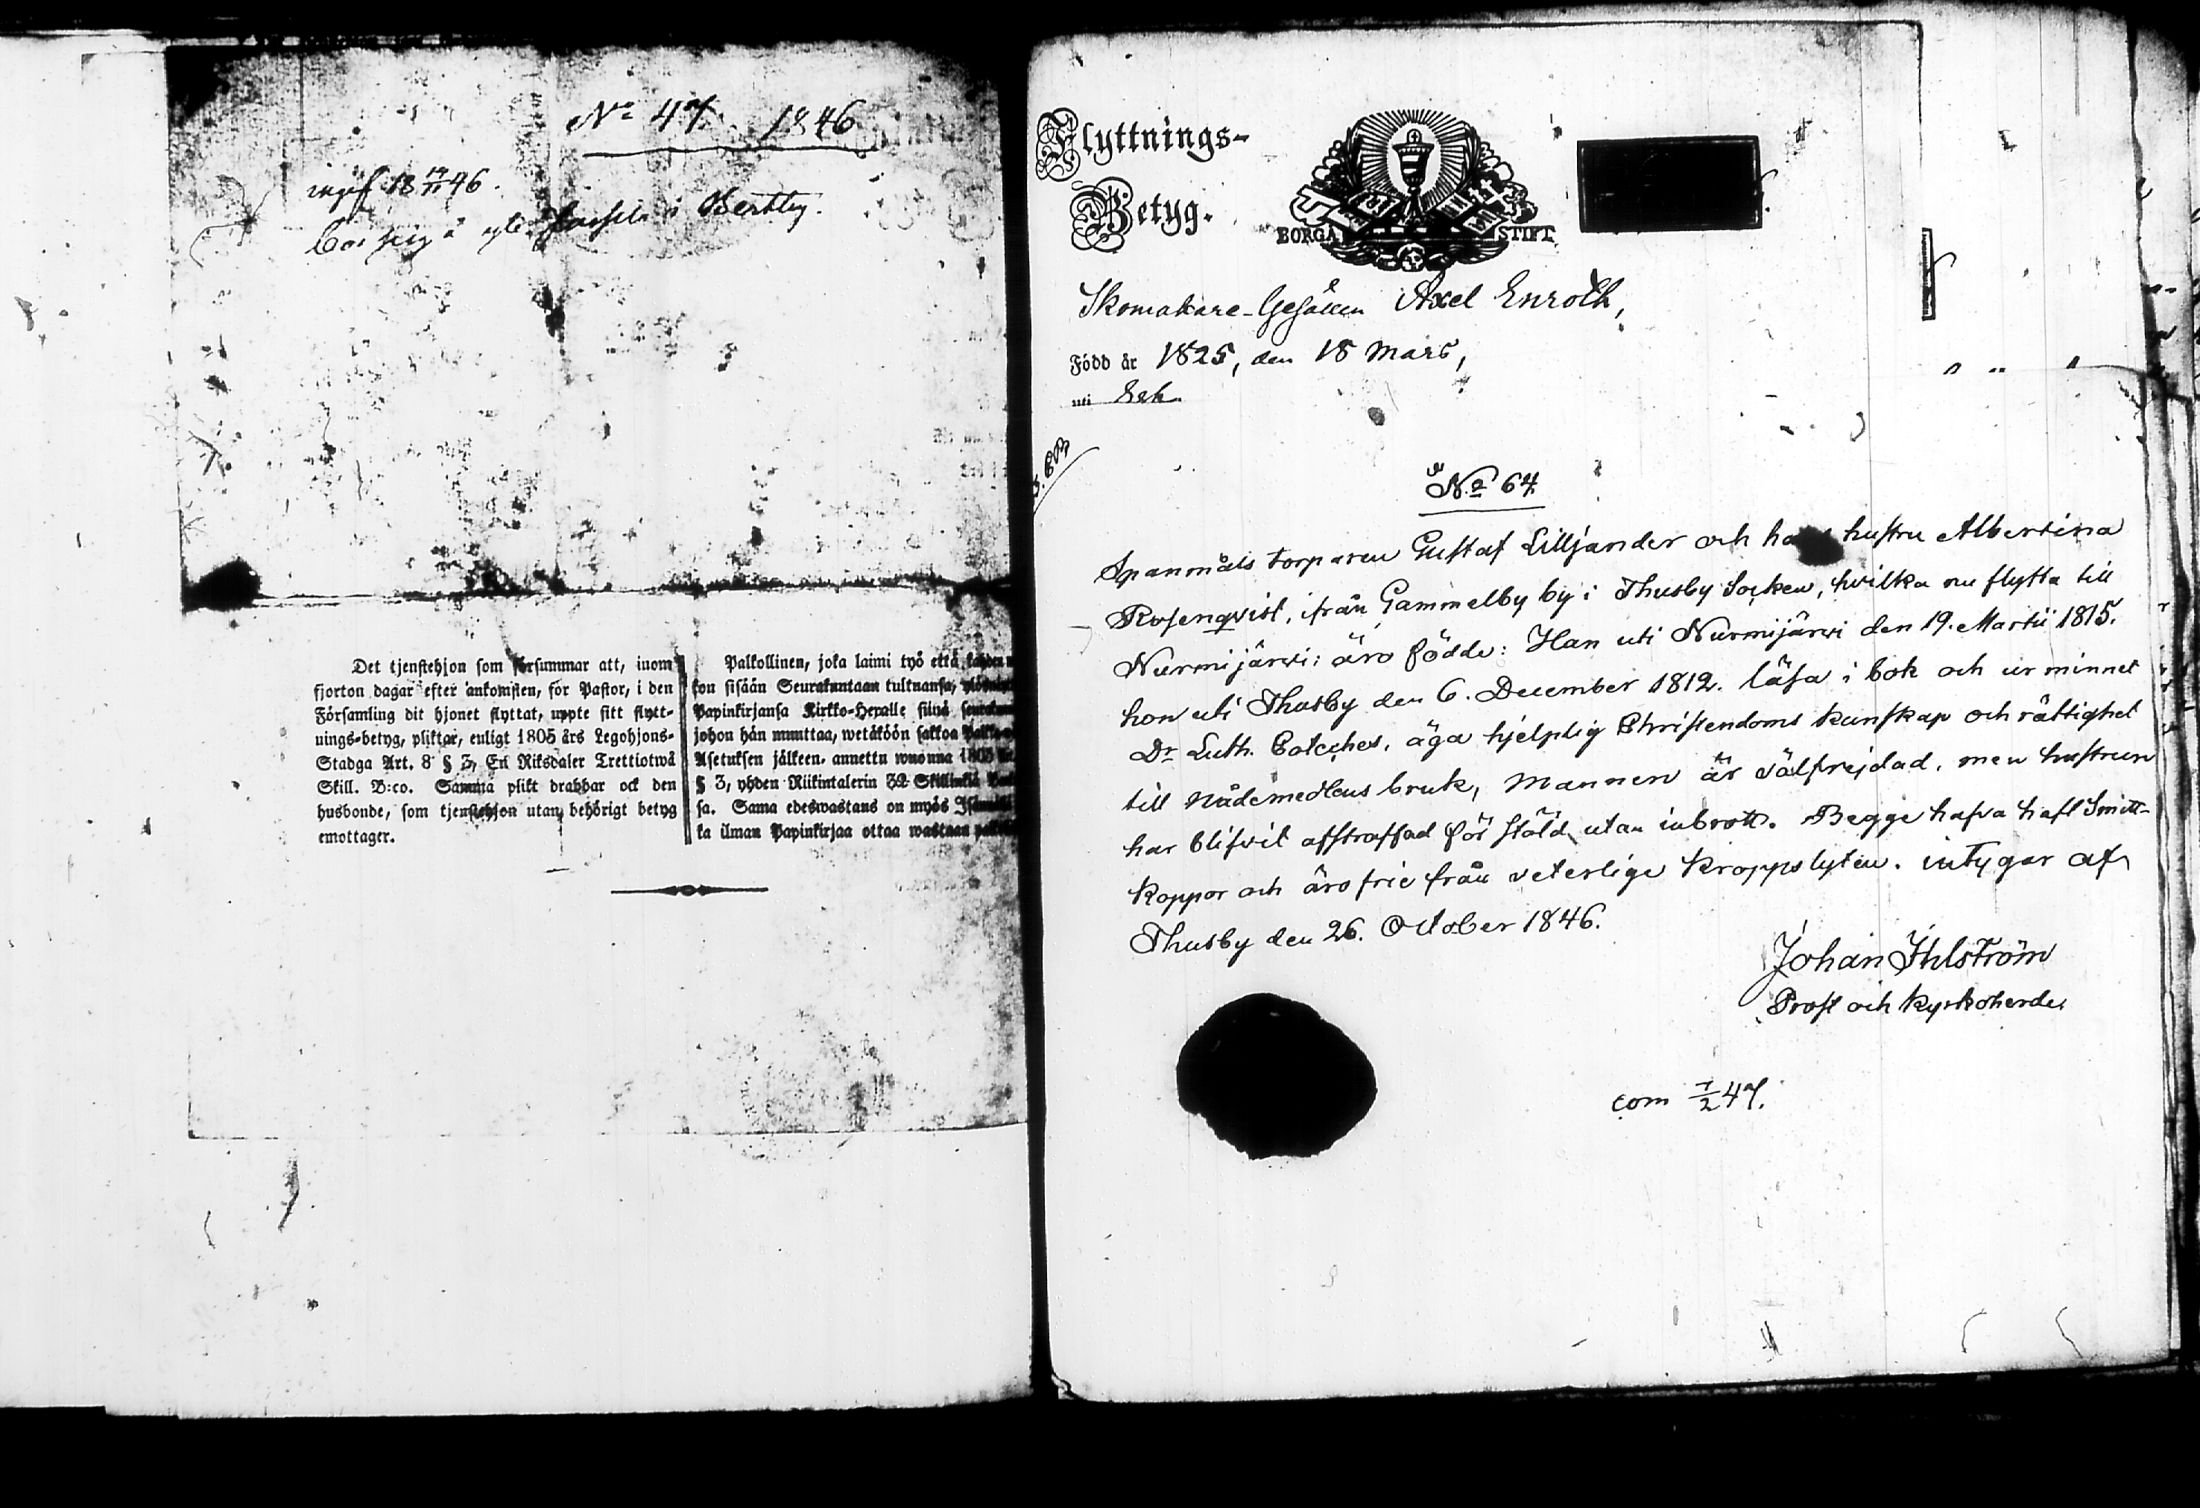 No 47 1846
Bertby.
Det tjenstehjon som försummar att, inom
fjorton dagar efter ankomsten, för Pastor, i den
Församling dit hjonet flyttat, uppte sitt flytt-
nings-betyg, pliktar, enligt 1805 års Legohjons-
Stadga Art. 8 § 3, En Riksdaler Trettiotwå
Skill. B:co. Samma plikt drabbar ock den
husbonde, som tjenstehjon utan behörigt betyg
emottager.
Palkollinen, joka laimi lyö että
kon sisään Seurakuntaan tultuansa,
Papinkirjansa Kirkko-Herralle siinä
johon hän muuttaa, wetäköön sakkoa
Asetuksen jälkeen, annettu wuonna 1805
§ 3, yhden Riikintalerin 32 Skillinkiä
sa. Sama edeswastaus on myös
ka ilman Papinkirjaa ottaa wastaan
Flyttnings-
Betyg.
BORGÅ STIFT
Skomakare-Gesällen Axel Enroth,
Född år 1825, den 18 Mars,
uti
No 64
Spanmåls torparen Gustaf Lilljander och hustru Albertina
Rosenqvist, ifrån Gammelby by i Thusby Socken, hvilka nu flytta till
Nurmijärvi; äro födde: Han uti Nurmijärvi den 19. Martii 1815.
hon uti Thusby den 6. December 1812. läsa i bok och ur minnet
Dr Luth. Catches, äga hjelplig Christendoms kunskap och rättighet
till nådemedlens bruk, Mannen är välfrejdad, men hustrun
har blifvit afstraffad för stöld utan inbrott. Begge hafva haft Smitt-
koppor och äro frie från veterlige kroppslyten. intygar af
Thusby den 26. October 1846.
Johan Ihlström
Prost och Kyrkoherde.
com 7/2 47.